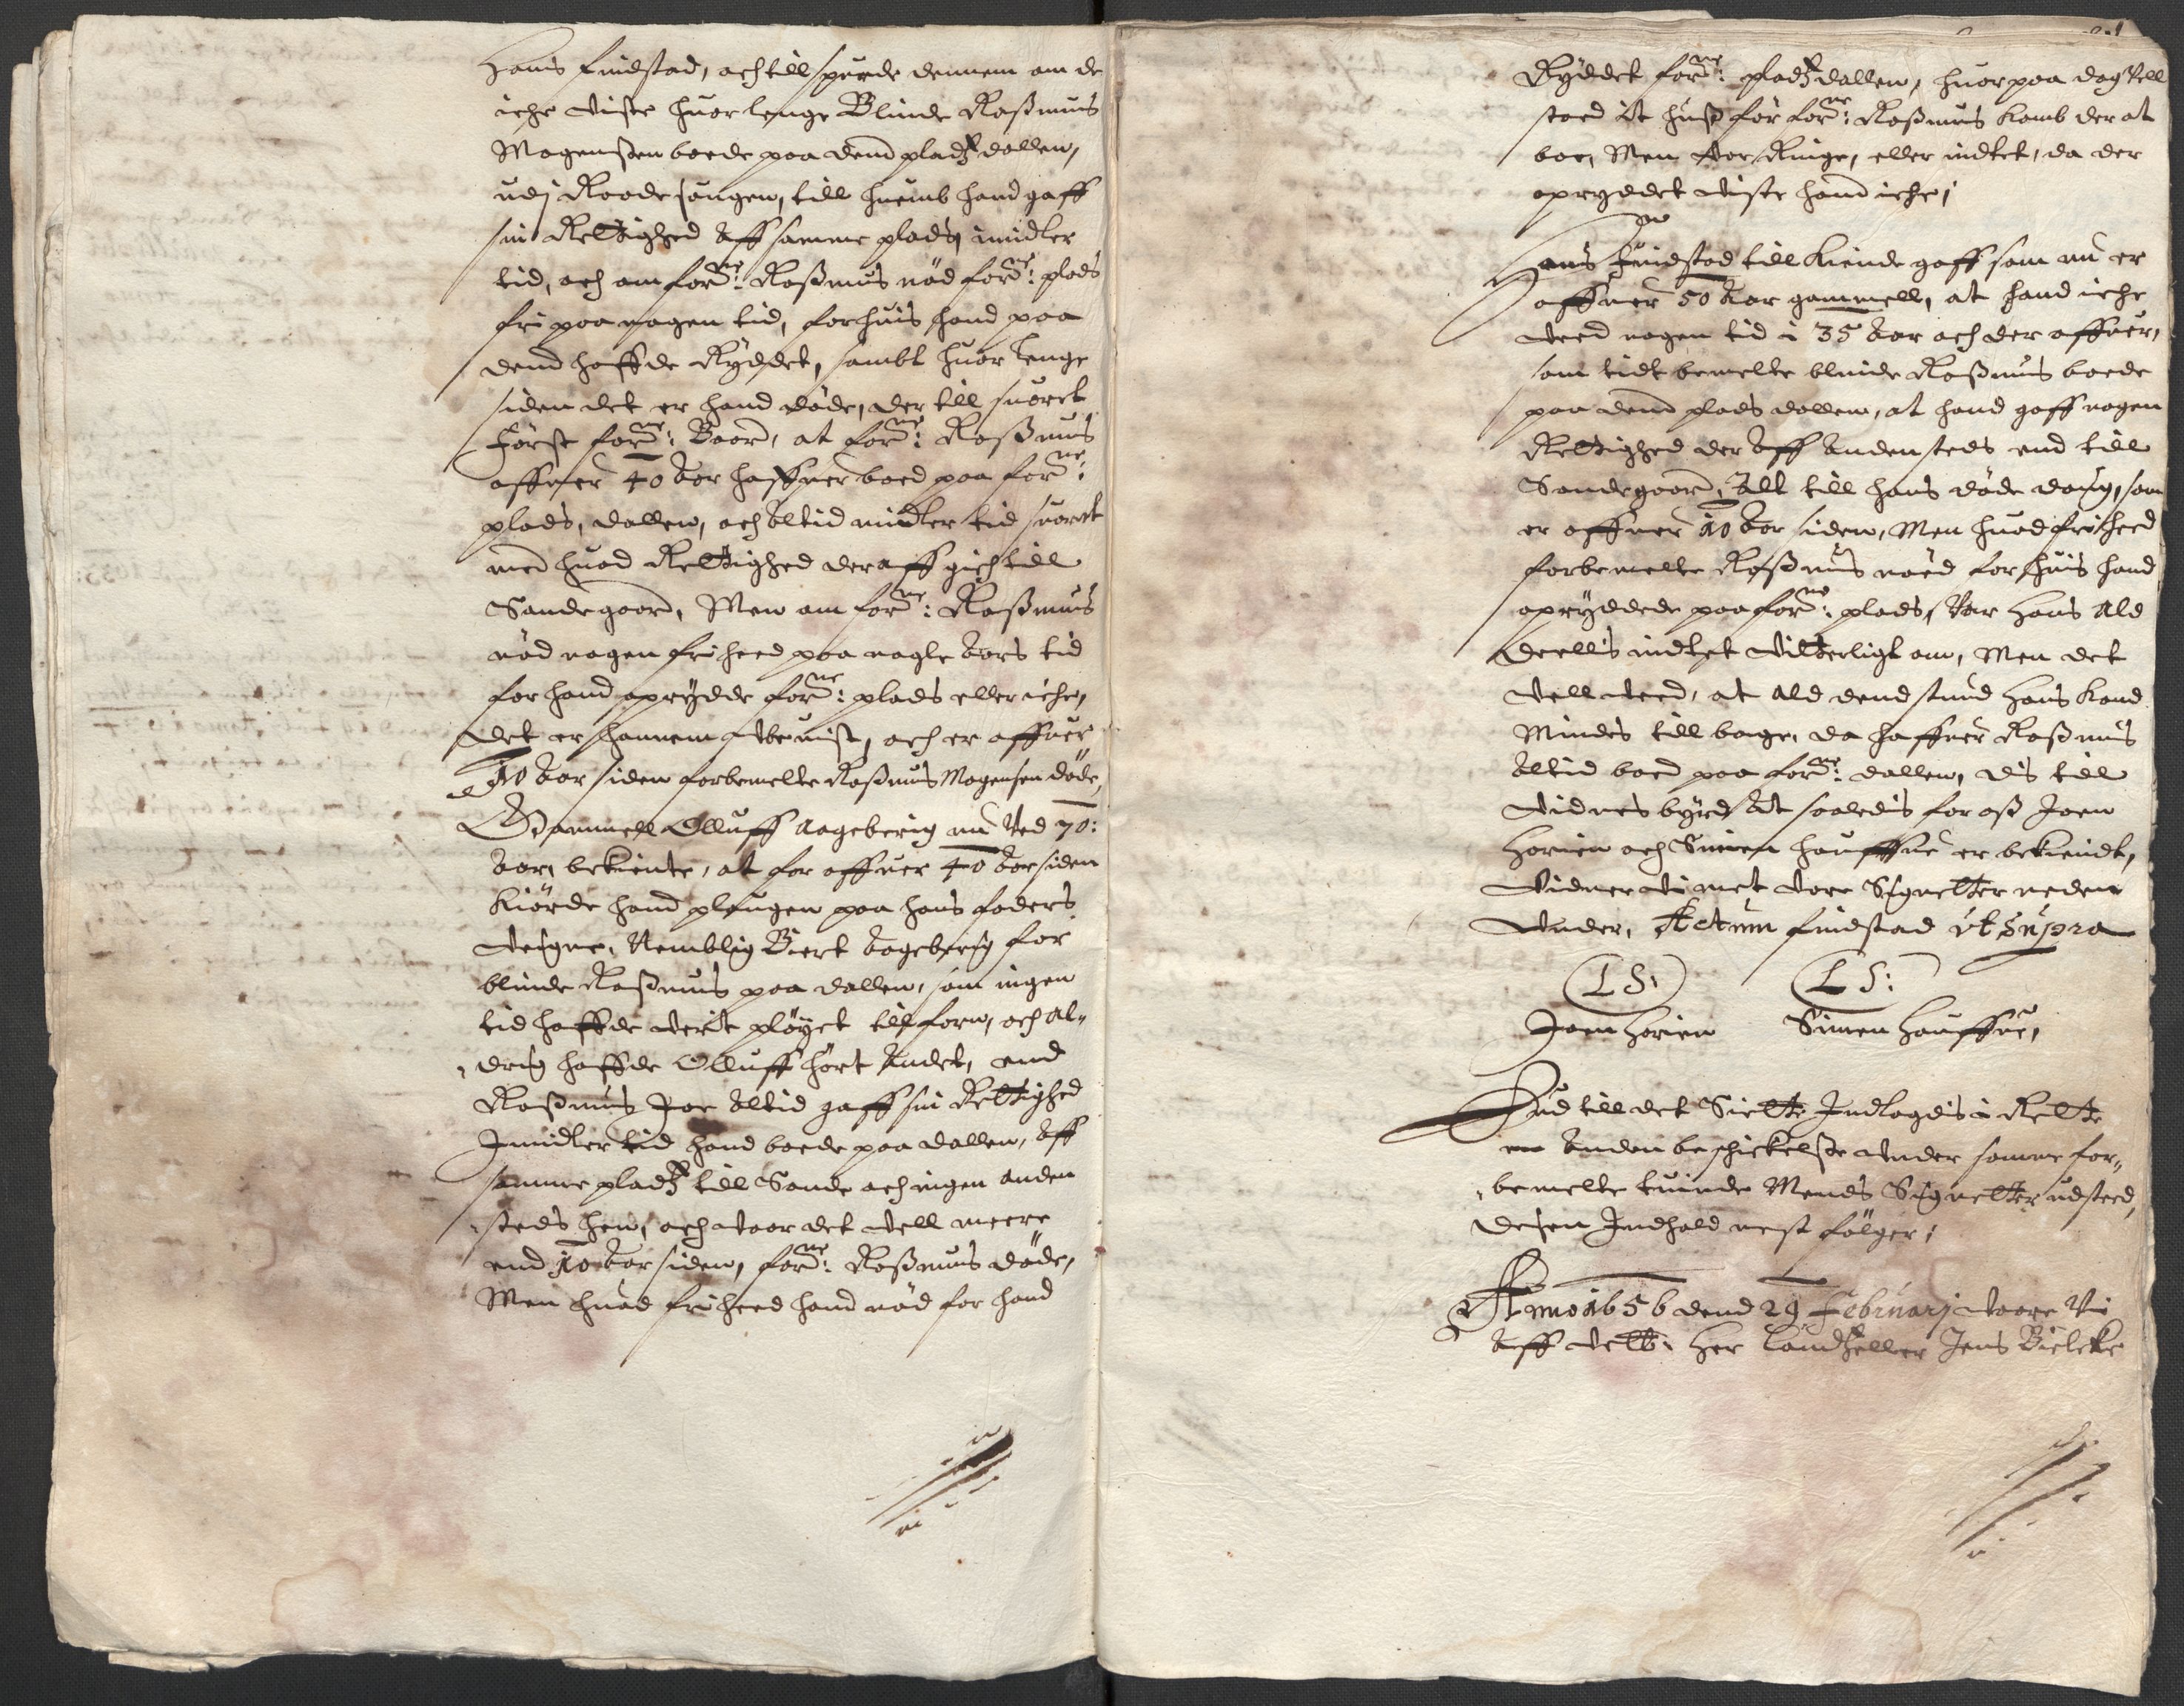 Hans findstad, och till spurde dennem om de
iche viste huor lenge Blinde Rasmus
Mogenssen boede paa dend pladz dallen,
udj Raade sougen, till huemb hand gaff
sin Rettighed aff samme plads, imidler
tid, och om forne: Rasmus nød forne: plads
fri paa nogen tid, forhuis hand paa
dend haffde Ryddet, sambt huor lenge
siden det er hand døde, der till suaret
Først forne: Baard, at forne: Rasmus
offuer 40 Aar haffuer boed paa forne:
plads, dallen, och Altid midler tid suaret
med huad Rettighed der aff gich till
Sandegaard, Men om forne: Rasmus
nød nogen friheed paa nogle Aars tid
for hand oprydde forne: plads eller iche,
det er hannem Vbeuist, och er offuer
10 Aar siden forbemelte Rasmus Mogensen døde,
Gammell Olluff Aageberig nu Ved 70:
Aar, bekiente, at for offuer 40 Aar siden
kiørde hand plougen paa hans faders
veigne, Nemblig Biert Aageberig for
blinde Rasmus paa dallen, som ingen
tid haffde verit pløyet tilforn, och al„
„drig haffde Olluff hørt Andet, end
Rasmus Joe Altid gaff sin Rettighed
Imidler tid hand boede paa dallen, Aff
samme pladz till Sande och ingen anden
steds hen, och vaar det vell meere
end 10 Aar siden, forne: Rasmus døde,
Men huad friheed hand nød for hand
Ryddet forne: pladz dallen, huor paa dog Vell
stoed it huss før forne: Rasmus komb der at
boe, Men Aer Ringe, eller indtet, da der
opryddet viste hand iche,
Hans Findstad till kiende gaff som nu er
offuer 50 Aar gammell, at hand iche
veed nogen tid i 35 Aar och der offuer,
som tidt bemelte blinde Rasmus boede
paa dend plads dallen, at hand gaff nogen
Rettighed der Aff Andensteds end till
Sandegaard, Alt till hans døde daug, som
er offuer 10 Aar siden, Men huad friheed
forbemelte Rasmus nøed for huis hand
opryddede paa forne: plads, Var Hans Ald
deellis indtet vitterligt om, Men det
vell veed, at Ald dend stund Hans kand
Mindes till bage, da haffuer Rasmus
Altid boed paa forne: dallen, dis till
vidnesbyrd At saaledis for oss Joen
Horien och Simen Hauffue er bekiendt,
Vidner vi met vore Signetter neden
vnder, Actum findstad vt Supra
(L S:) (L S:
Joen Horien Simen Hauffue,
Dud till det Siette Indlagdis i Rette
en Anden beschickelsse vnder samme for„
„bemelte tuinde Mends Signetter udsteed,
desen Indhold nest følger,
Anno 1656 dend 29 Februarj vaare Vi
Aff velb: Her Landzeller Jens Bielcke